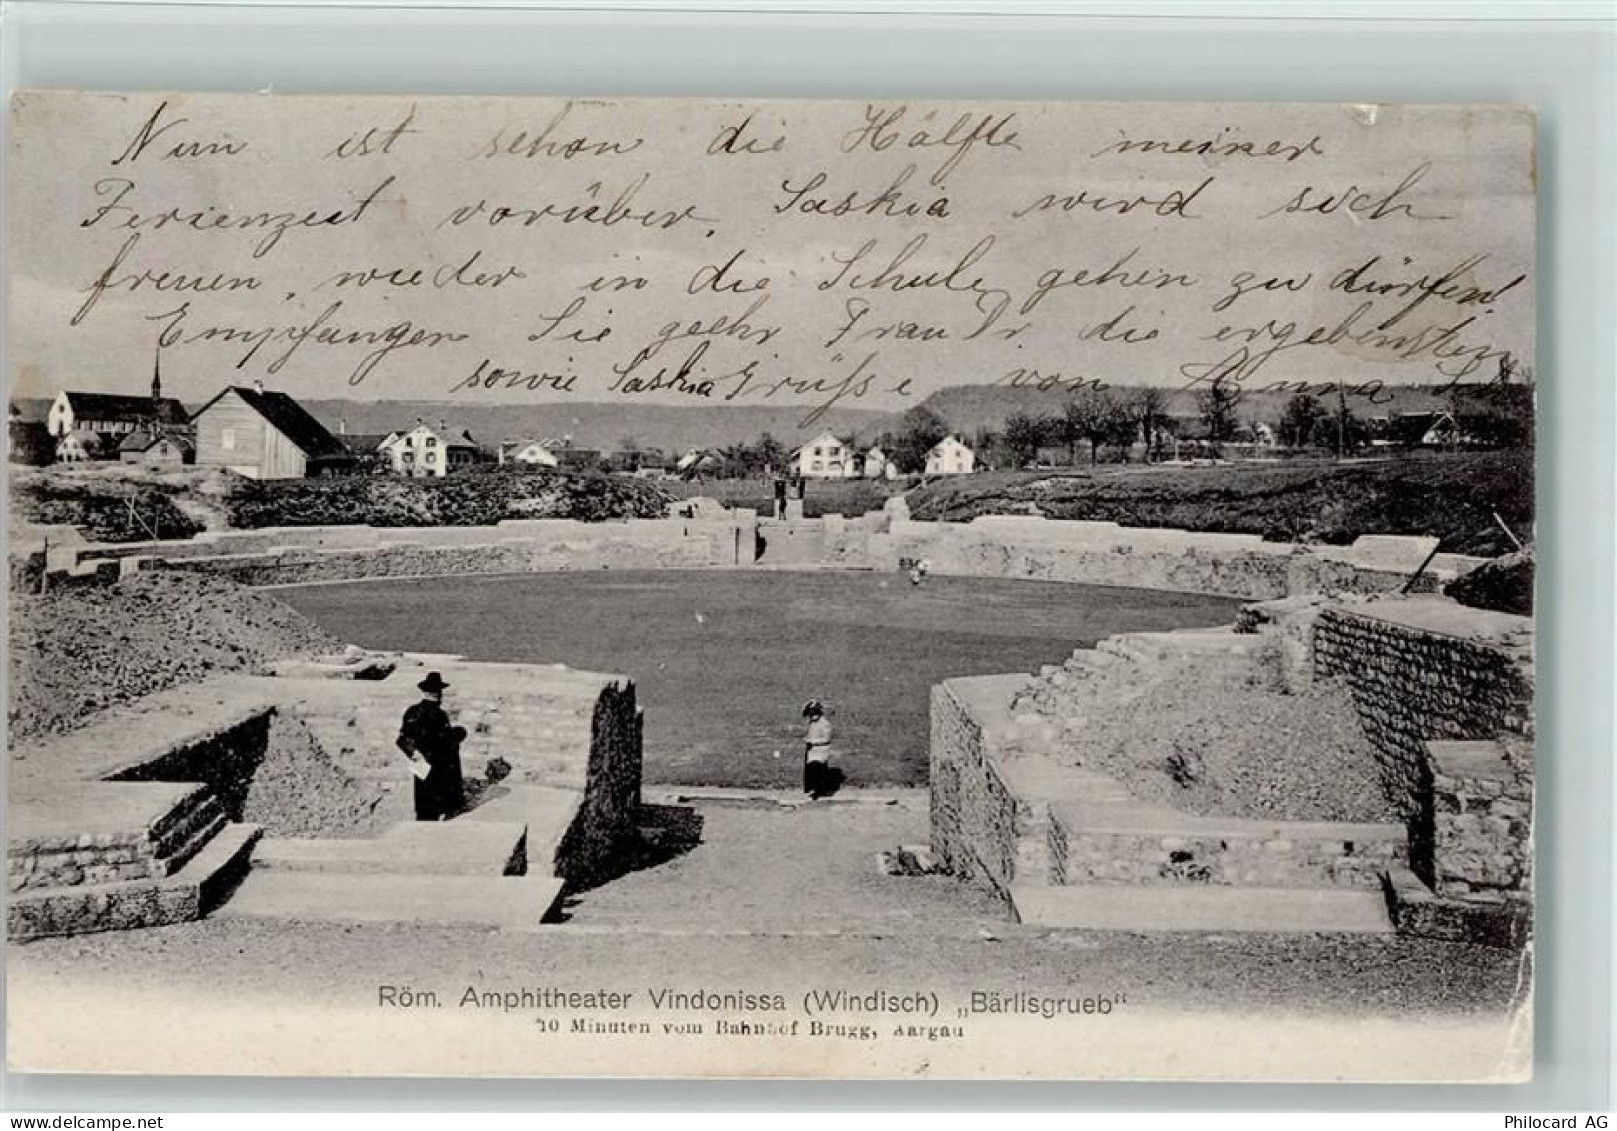 Nun ist schon die Hälfte meiner
Ferienzeit vorüber, Saskia wird sich
freuen, wieder in die Schule gehen zu dürfen.
Empfangen Sie geehr Frau Dr. die ergebensten
sowie Saskia Grüsse von Anna
Röm. Amphitheater Vindonissa (Windisch) „Bärlisgrueb“
10 Minuten vom Bahnhof Brugg, Aargau
Philocard AG